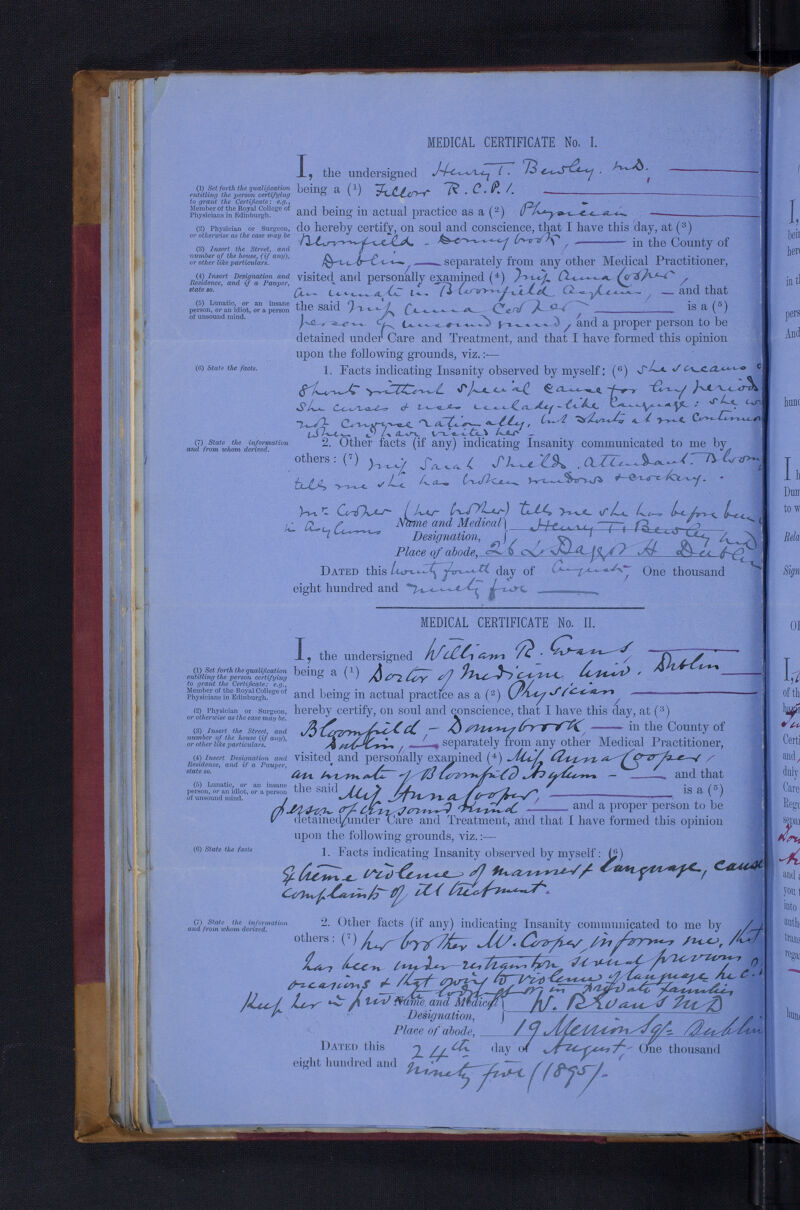 MEDICAL CERTIFICATE No. I.
I, the undersigned Henry T. Bewley. M.D.
(1) Set forth the qualification
entitling the person certifying
to grant the Certificate: e.g.,
Member of the Royal College of
Physicians in Edinburgh.
being a (1) Fellow R.C.P.I.
and being in actual practice as a (2) Physician
(2) Physician or Surgeon,
or otherwise as the case may be
do hereby certify, on soul and conscience, that I have this day, at (3)
Bloomfield - Donnybrook, in the County of
(3) Insert the Street, and
number of the house, (if any),
or other like particulars.
Dublin, separately from any other Medical Practitioner,
(4) Insert Designation and
Residence, and if a Pauper,
state so.
visited and personally examined (4) Miss Anna Cooper,
an inmate in Bloomfield Asylum, and that
(5) Lunatic, or an insane
person, or an idiot, or a person
of unsound mind.
the said Miss Anna Cooper is a (5)
person of unsound mind, and a proper person to be
detained under Care and Treatment, and that I have formed this opinion
upon the following grounds, viz.:—
(6) State the facts.
1. Facts indicating Insanity observed by myself: (6) She screams &
shouts without special cause for long periods
She curses & uses unlady-like language: she
not converse rationally, but shouts at me
when I have visited her
(7) State the information
and from whom derived.
2. Other facts (if any) indicating Insanity communicated to me by
others: (7) Miss Sarah Shields, Attendant. Bloom
tells me she has broken windows & crockery.
Mr. Cooper (her brother) tells me she has before been
in Asylums
Name and Medical
Designation, Henry T. Bewley MD
Place of abode, 26 L Baggot St Dublin
DATED this twenty fourth day of August, One thousand
eight hundred and ninety five
MEDICAL CERTIFICATE No. II.
I, the undersigned William R. Evans
(1) Set forth the qualification
entitling the person certifying
to grant the Certificate: e.g.,
Member of the Royal College of
Physicians in Edinburgh.
being a (1) Doctor of Medicine, Univ. Dublin
and being in actual practice as a (2) Physician,
(2) Physician or Surgeon,
or otherwise as the case may be.
hereby certify, on soul and conscience, that I have this day, at (3)
Bloomfield, - Donnybrook, in the County of
(3) Insert the Street, and
number of the house (if any),
or other like particulars.
Dublin, separately from any other Medical Practitioner,
(4) Insert Designation and
Residence, and if a Pauper,
state so.
visited and personally examined (4) Miss Anna Cooper,
an inmate of Bloomfield Asylum - and that
(5) Lunatic, or an insane
person, or an idiot, or a person
of unsound mind.
the said Miss Anna Cooper, is a (5)
person of unsound mind and a proper person to be
detained under Care and Treatment, and that I have formed this opinion
upon the following grounds, viz.:—
(6) State the facts
1. Facts indicating Insanity observed by myself: (6)
Extreme violence of manner & language,
complaints of ill treatment.
(7) State the information
and from whom derived.
2. Other facts (if any) indicating Insanity communicated to me by
others: (7) her brother Mr. Cooper, informs me, that
has been under restraint on several previous
occasions & that owing to violence of language he
keep her in private families
Name and Medical
Designation, W. R. Evans MD
Place of abode, 19 Merrion Sq. Dublin
DATED this 24th day of August, One thousand
eight hundred and ninety five (1895).